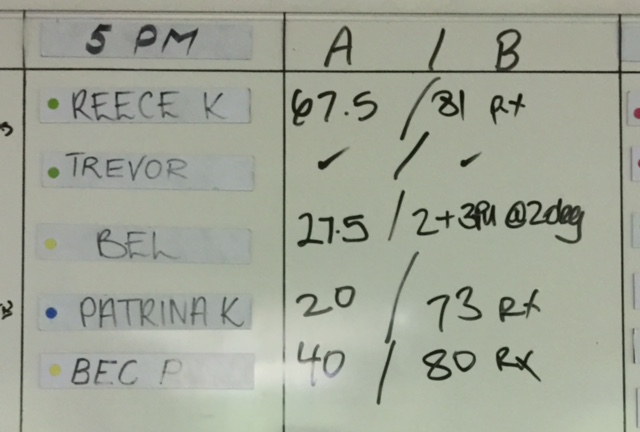 5 PM A / B
REECE K 67.5 / 81 RX
TREVOR ✓ / ✓
BEL 27.5 / 2+3PU @2deg
PATRINA K 20 / 73 RX
BEC P 40 / 80 RX